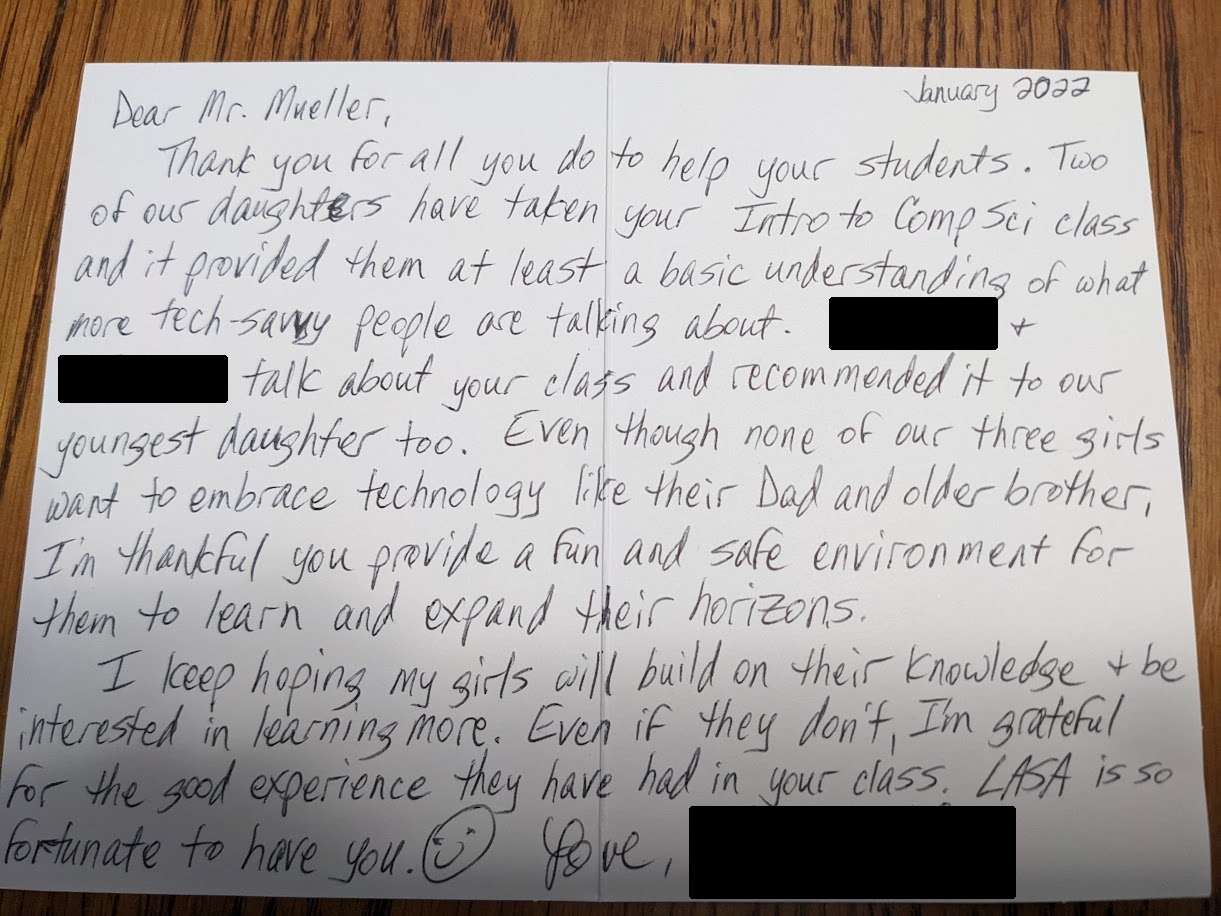 January 2022
Dear Mr. Mueller,
Thank you for all you do to help your students. Two
of our daughters have taken your Intro to CompSci class
and it provided them at least a basic understanding of what
more tech-savvy people are talking about. +
talk about your class and recommended it to our
youngest daughter too. Even though none of our three girls
want to embrace technology like their Dad and older brother,
I'm thankful you provide a fun and safe environment for
them to learn and expand their horizons.
I keep hoping my girls will build on their knowledge + be
interested in learning more. Even if they don't, I'm grateful
for the good experience they have had in your class. LASA is so
fortunate to have you. Love,